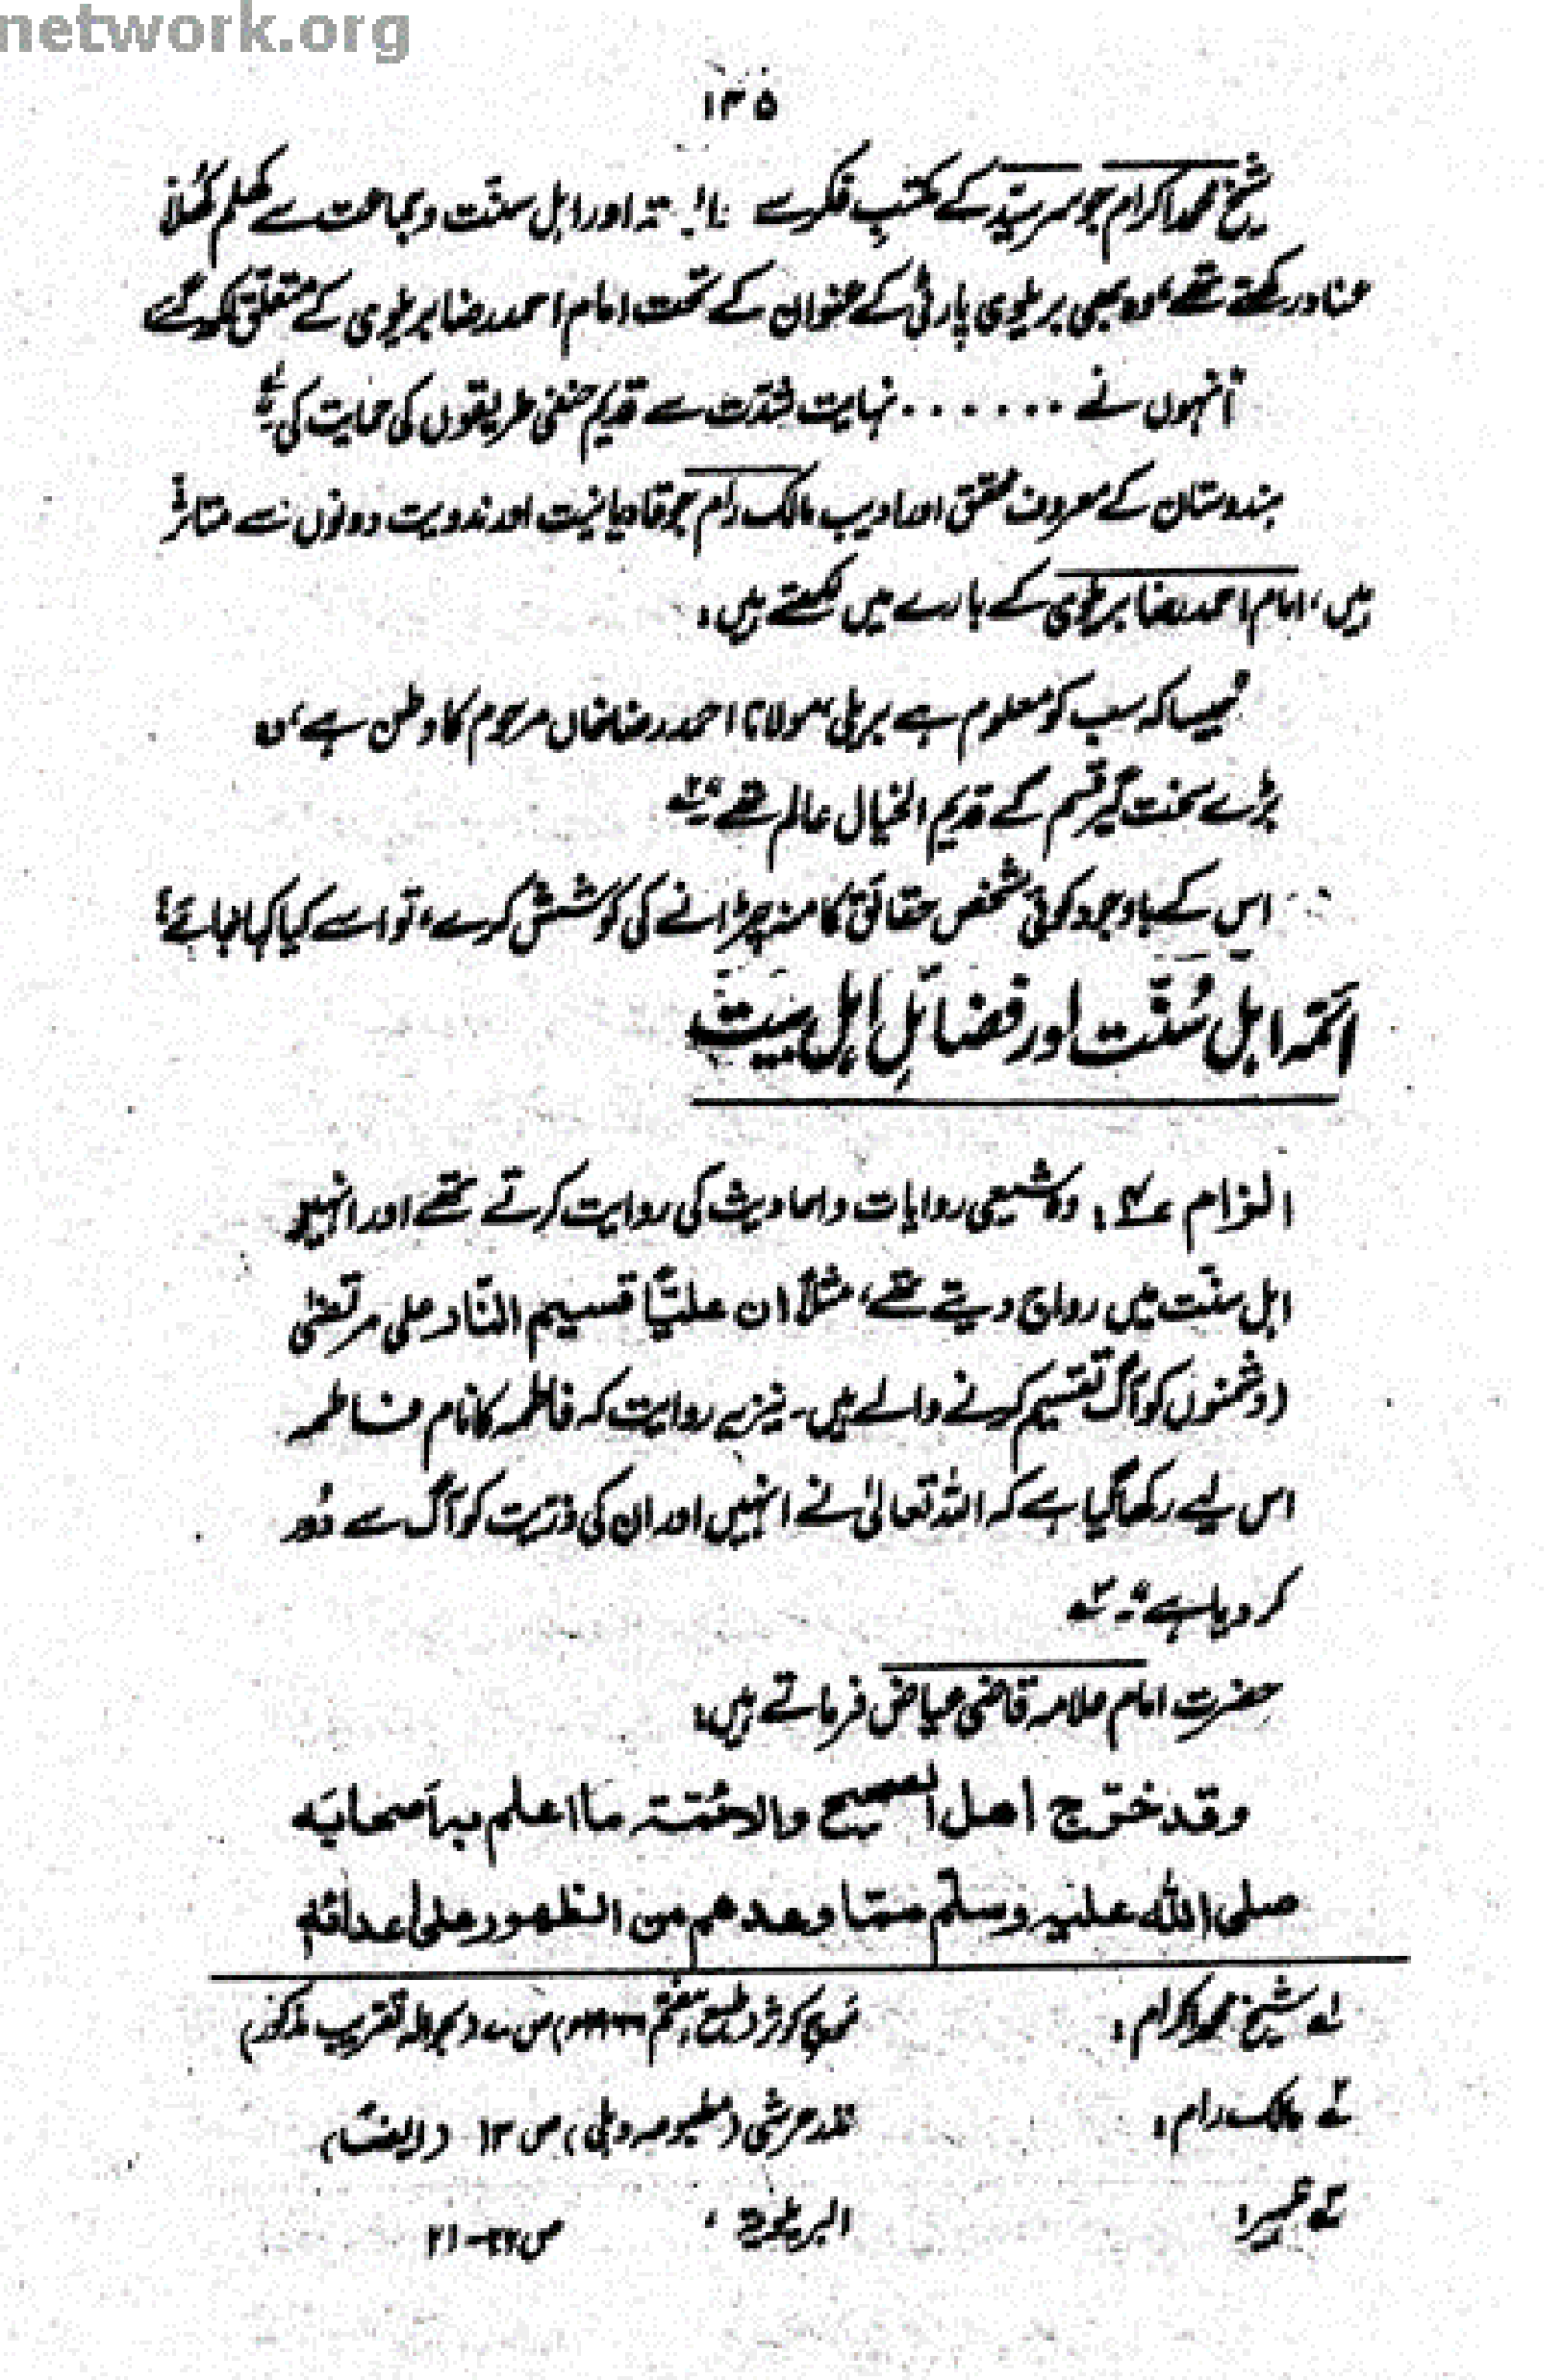 network.org
۱۳۵
شیخ محمد اکرام جو سرسید کے مکتبِ فکر سے وابستہ اور اہل سنّت و جماعت سے کھلم کھلا
عناد رکھتے تھے، وہ بھی بریلوی پارٹی کے عنوان کے تحت امام احمد رضا بریلوی کے متعلق لکھ گئے
انہوں نے ...... نہایت شدّت سے قدیم حنفی طریقوں کی حمایت کی لے
ہندوستان کے معروف محقق اور ادیب مالک رام جو قادیانیت اور ندویت دونوں سے متاثر
ہیں، امام احمد رضا بریلوی کے بارے میں لکھتے ہیں:
جیسا کہ سب کو معلوم ہے بریلی مولانا احمد رضا خاں مرحوم کا وطن ہے، وہ
بڑے سخت گیر قسم کے قدیم الخیال عالم تھے ۲ے
اس کے باوجود کوئی شخص حقائق کا منہ چڑانے کی کوشش کرے، تو اسے کیا کہا جائے؟
ائمّہ اہلِ سُنّت اور فضائلِ اہلِ بیت
الزام ۴: وہ شیعی روایات و احادیث کی روایت کرتے تھے اور انہیں
اہل سنّت میں رواج دیتے تھے، مثلاً ان علیّاً قسیم النّار علی مرتضیٰ
(دشمنوں کو) آگ تقسیم کرنے والے ہیں۔ نیز یہ روایت کہ فاطمہ کا نام فاطمہ
اس لیے رکھا گیا ہے کہ اللہ تعالیٰ نے انہیں اور ان کی ذرّیت کو آگ سے دُور
کر دیا ہے ۳ے
حضرت امام علامہ قاضی عیاض فرماتے ہیں:
وقد خرّج اھل الصحیح والائمّۃ ما اعلم بہ اصحابہ
صلی اللہ علیہ وسلم ممّا وعدھم من الظھور علی اعدائہ
۱ے شیخ محمد اکرام: موج کوثر (طبع ہفتم) ص ۷۰ (بحوالہ تقریب مذکور)
۲ے مالک رام: نذر عرشی (مطبوعہ دہلی) ص ۱۳ (ایضاً)
۳ے ظہیر: البریلویۃ، ص ۲۲-۲۱